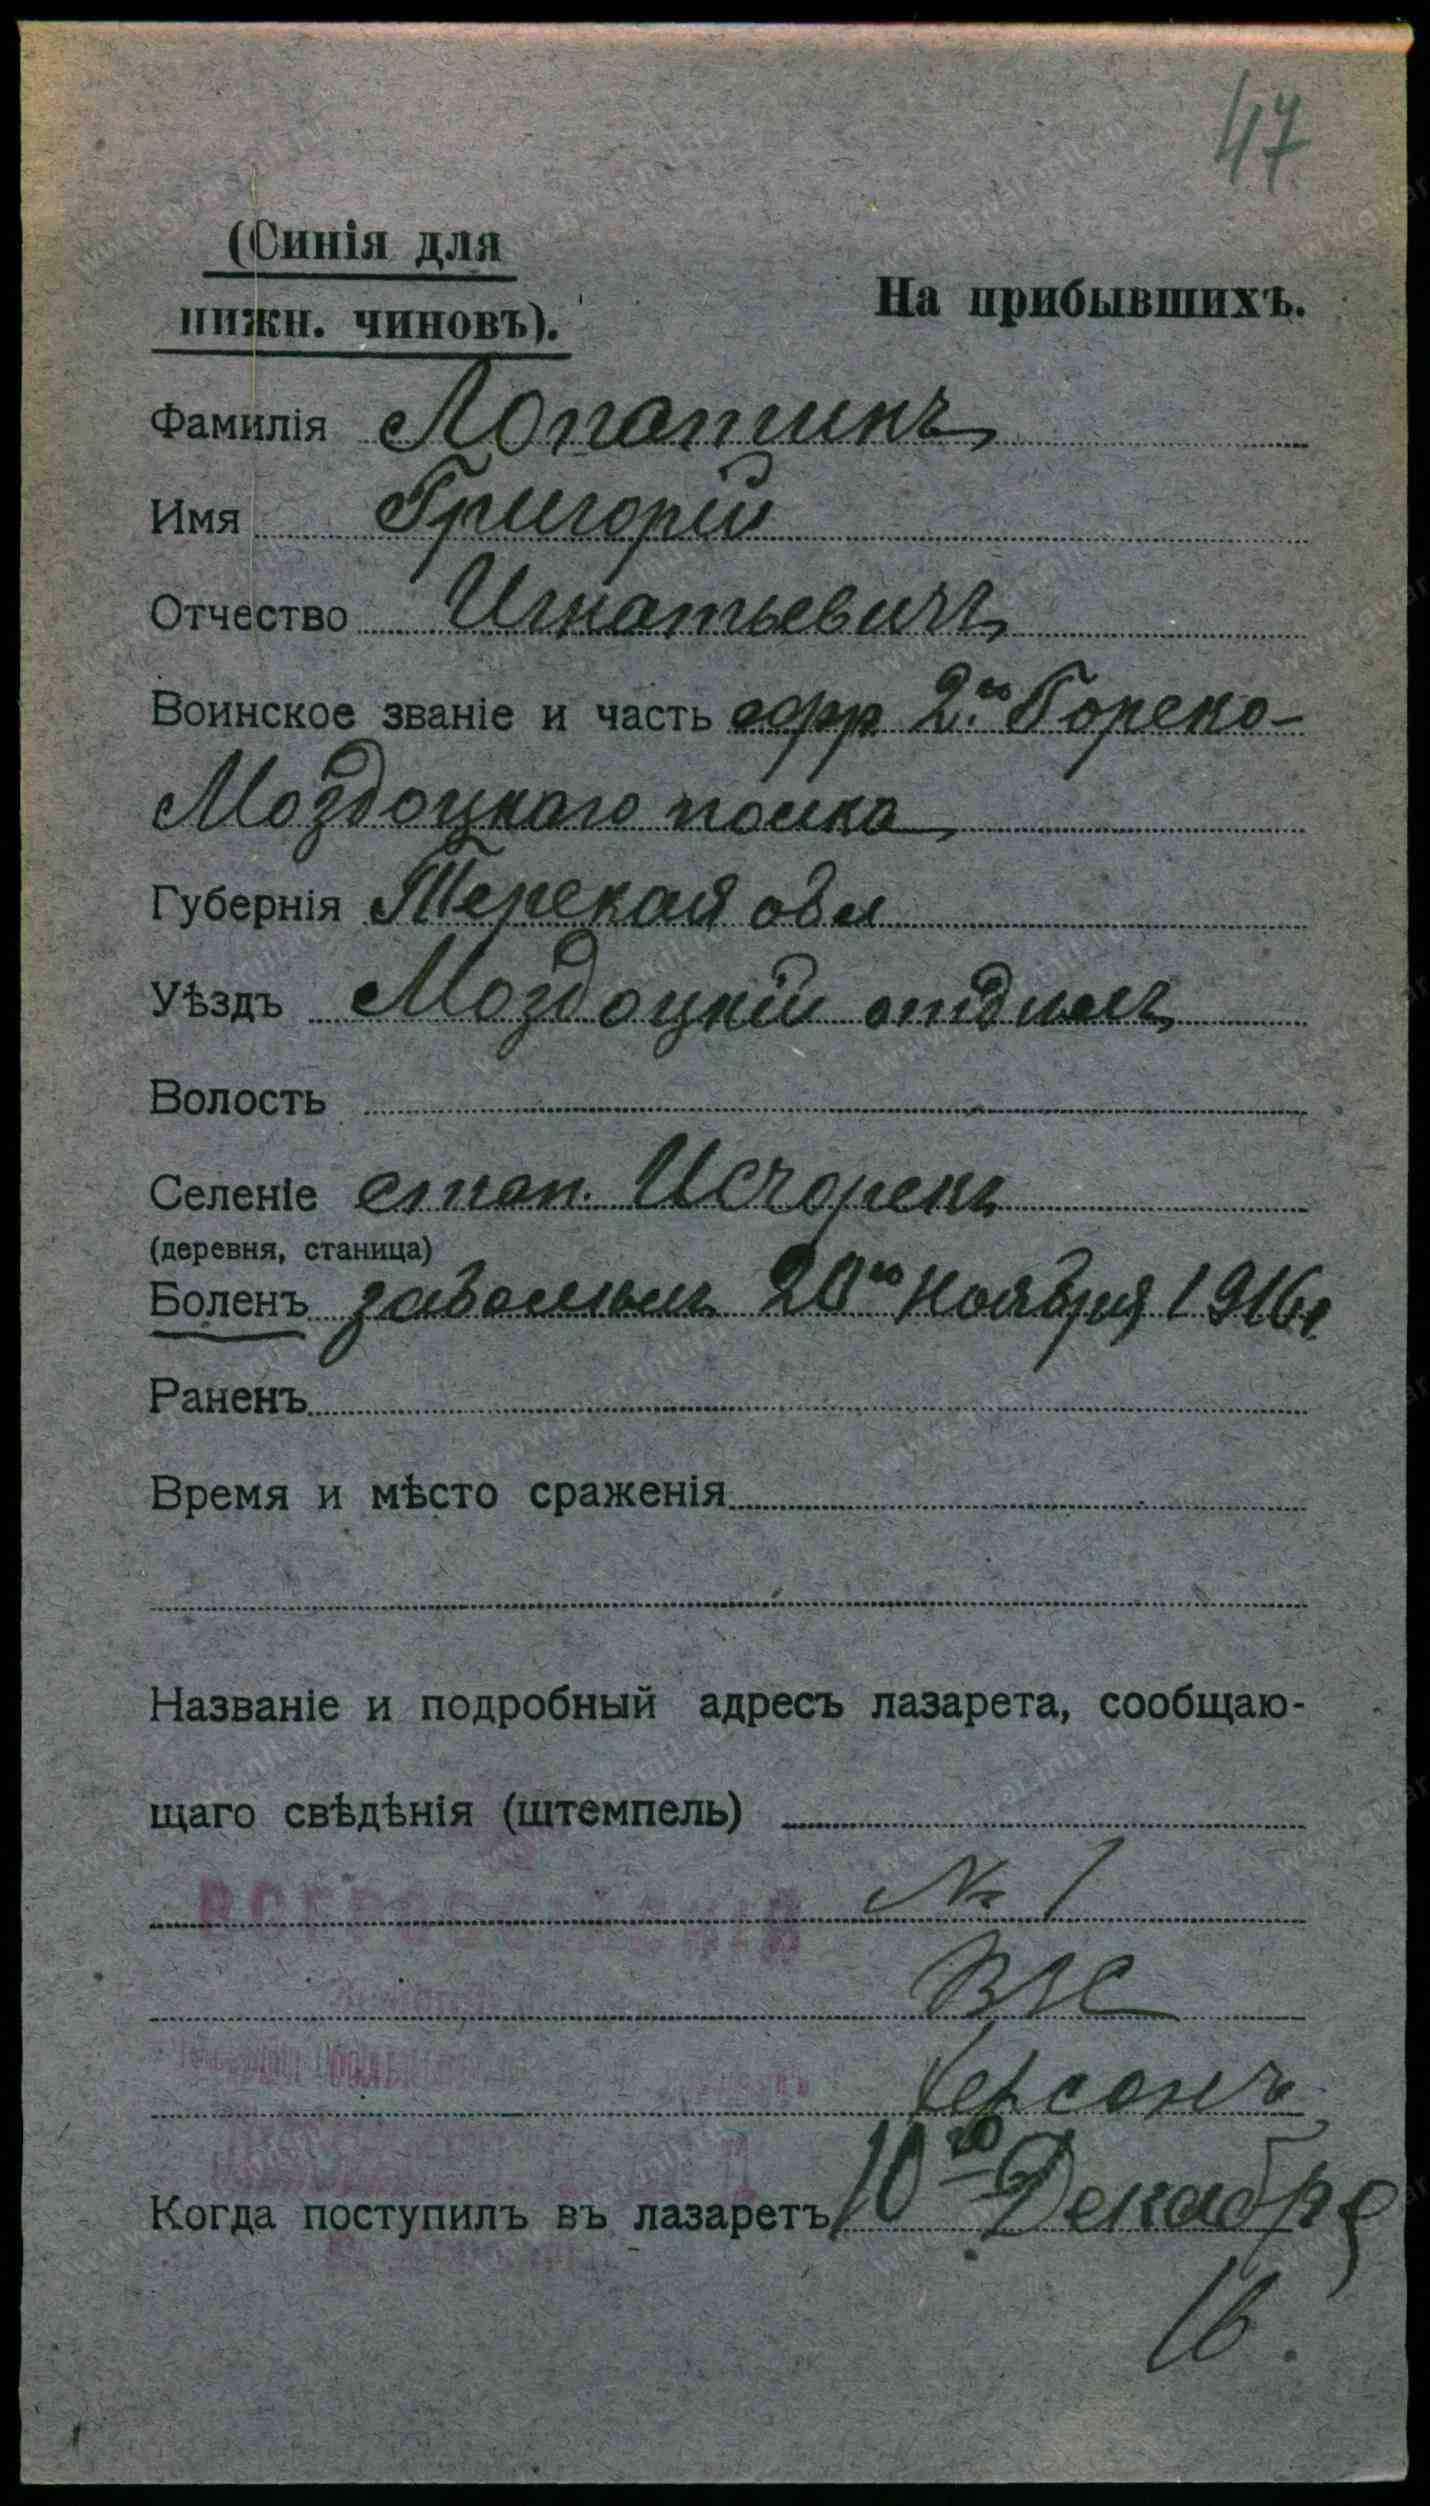 47
(Синія для
нижн. чиновъ).
На прибывшихъ.
Фамилія Лопатинъ
Имя Григорій
Отчество Игнатьевичъ
Воинское званіе и часть 2го Горско-
Моздоцкаго полка
Губернія Терская обл
Уѣздъ Моздоцкій отдѣлъ
Волость
Селеніе стан. Исчорскъ
(деревня, станица)
Боленъ 20го Ноября 1916г
Раненъ
Время и мѣсто сраженія
Названіе и подробный адресъ лазарета, сообщаю-
щаго свѣдѣнія (штемпель)
№ 1
ВЗС
Херсонъ
Когда поступилъ въ лазаретъ 10го Декабря
16.